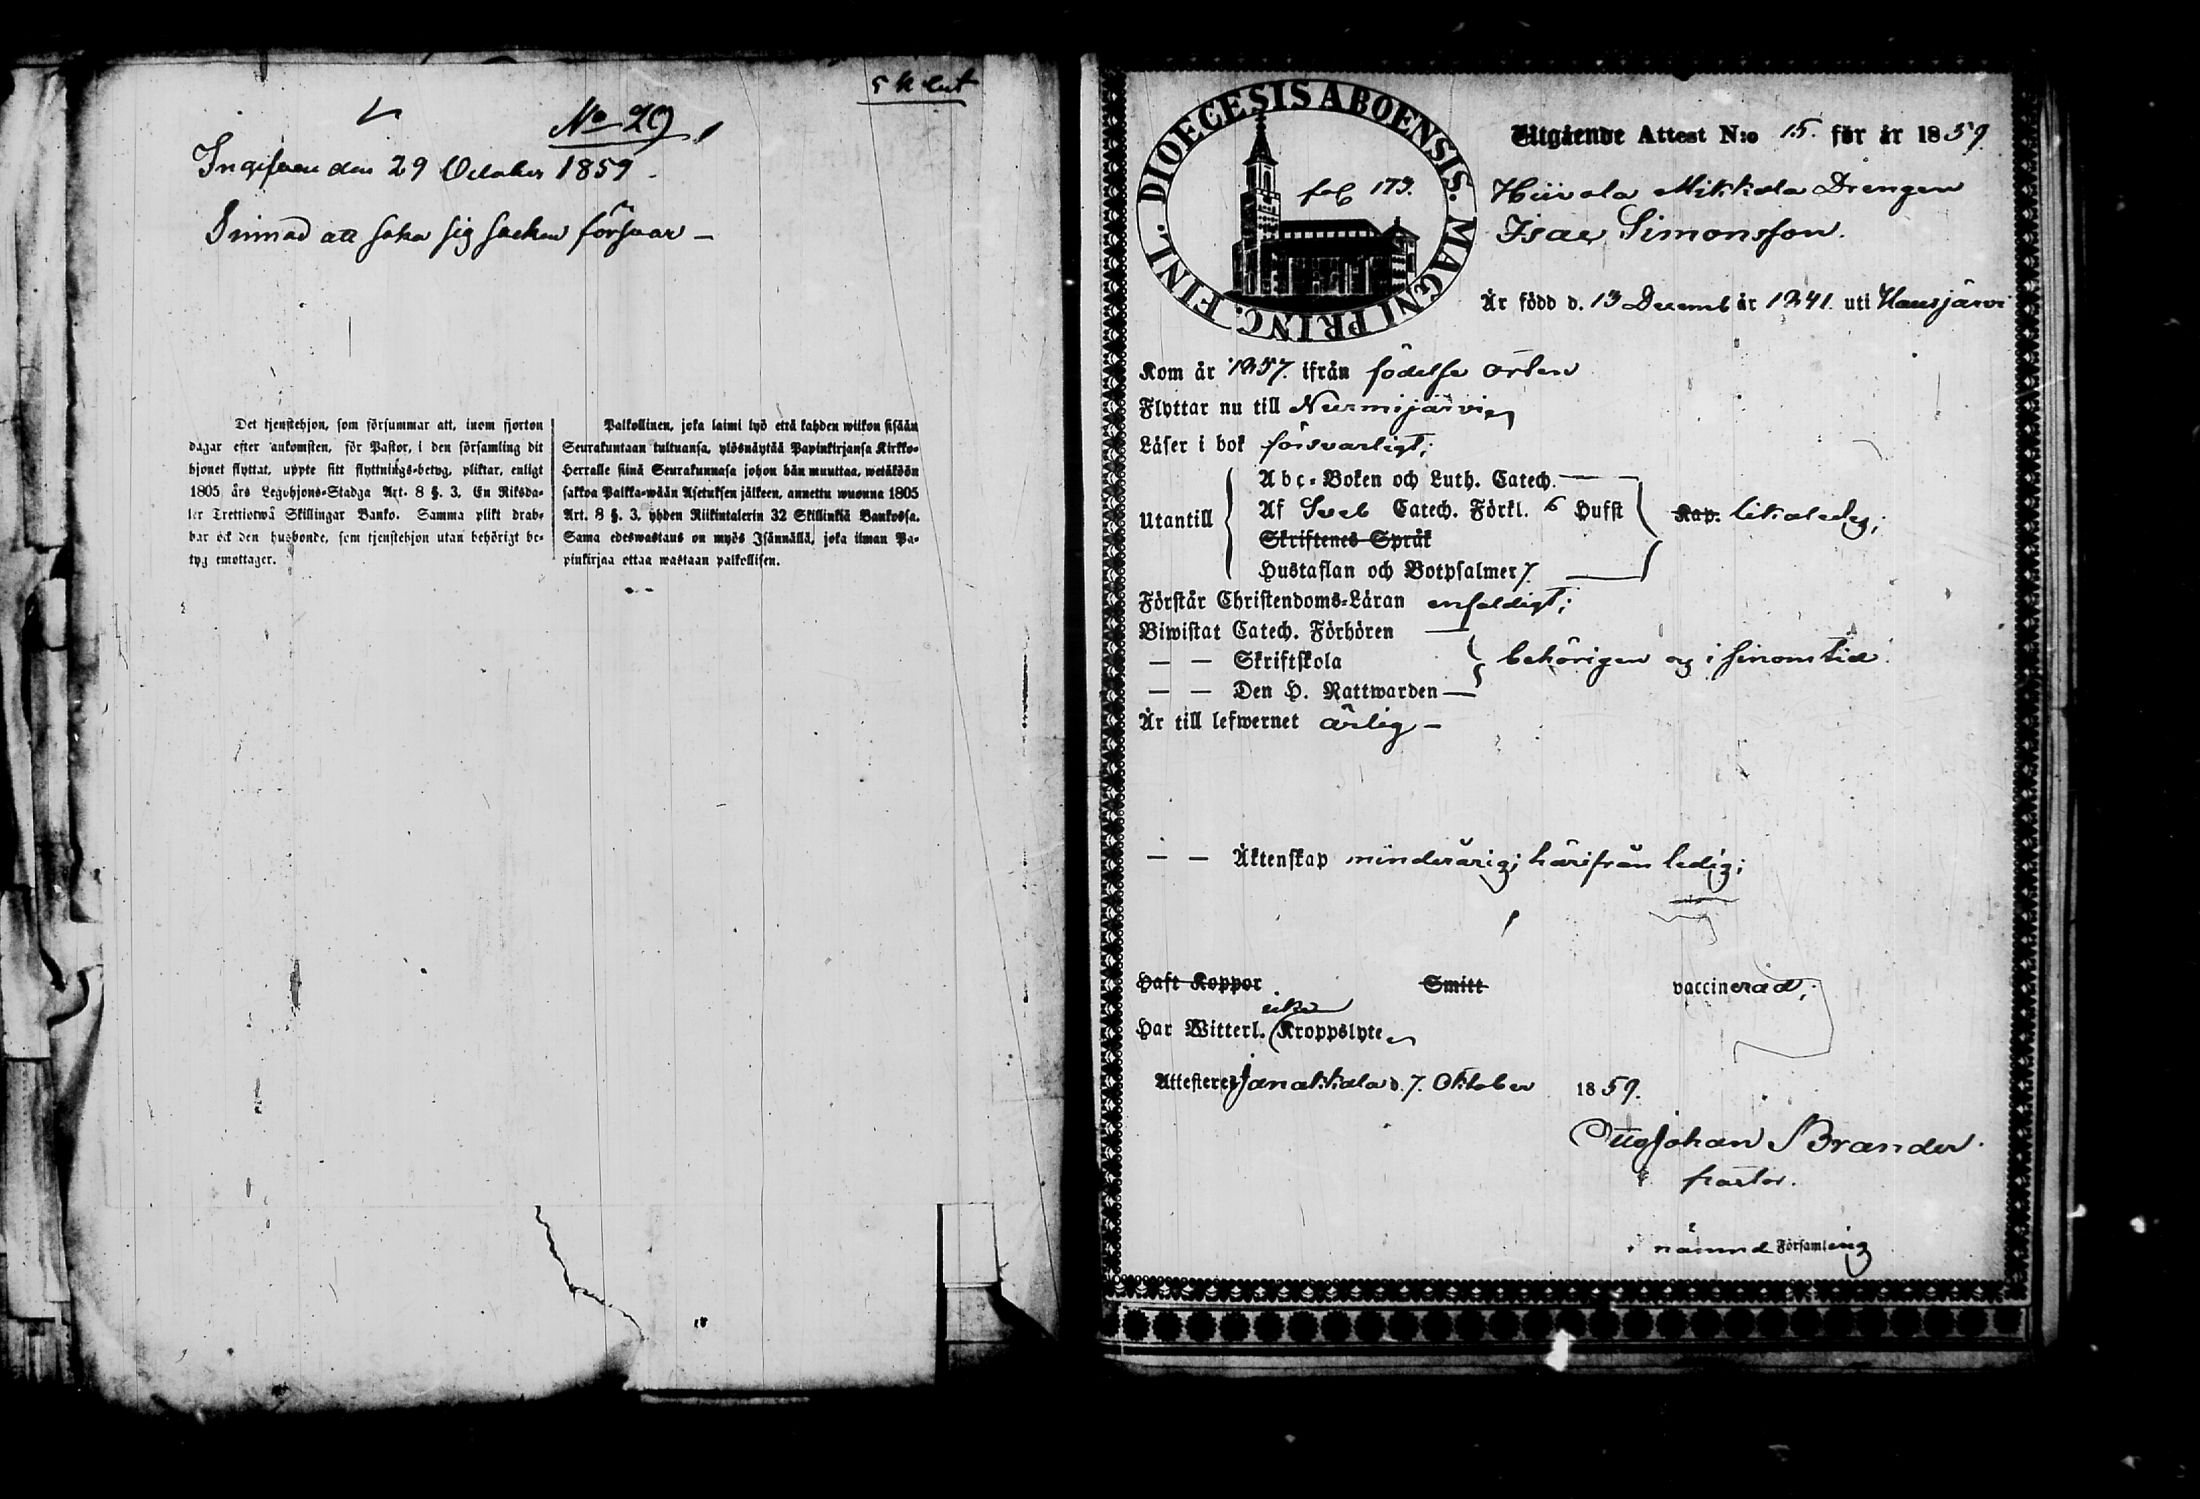 No 29
Ingifven den 29 October 1859.
att söka sig försvar –
Det tjenstehjon, som försummar att, inom fjorton
dagar efter ankomsten, för Pastor, i den församling dit
hjonet flyttat, uppte sitt flyttnings-betyg, pliktar, enligt
1805 års Legohjons-Stadga Art. 8 §. 3, En Riksda-
ler Trettiotwå Skillingar Banko. Samma plikt drab-
bar ock den husbonde, som tjenstehjon utan behörigt be-
tyg emottager.
Palkollinen, joka laimi lyö että kahden wiikon sisään
Seurakuntaan tultuansa, ylösnäytää Papinkirjansa Kirkko-
Herralle siinä Seurakunnasa johon hän muuttaa, wetäköön
sakkoa Palkka-wään Asetuksen jälkeen, annettu wuonna 1805
Art. 8 §. 3, yhden Riikintalerin 32 Skillinkiä Bankossa.
Sama edeswastaus on myös Isännällä, joka ilman Pa-
pinkirjaa ottaa wastaan palkollisen.
DIOECESIS ABOENSIS. MAGNI PRINC. FINL.
fol 173.
Utgående Attest N:o 15. för år 1859
Hiivola Mikkola Drengen
Isac Simonsson.
Är född d. 13 Decemb år 1841. uti Hausjärvi
Kom år 1857. ifrån födelse orten
Flyttar nu till Nurmijärvi
Läser i bok försvarligt;
Utantill
Abc-Boken och Luth. Catech.
Af Sveb Catech. Förkl. 6 Hufst
Skriftenes Språk
Hustaflan och Botpsalmer 7.
Kap. likaledes;
Förstår Christendoms-Läran enfaldigt;
Biwistat Catech. Förhören
— — Skriftskola
— — Den H. Nattwarden
behörigen og i sinom tid.
Är till lefwernet ärlig –
— — Äktenskap minderårig; härifrån ledig;
Haft Koppor Smitt vaccinerad;
Har Witterl. icke Kroppslyte
Attesteres Janakkala d. 7. Oktober 1859.
Aug Johan Brander.
Pastor.
i nämnd Församling